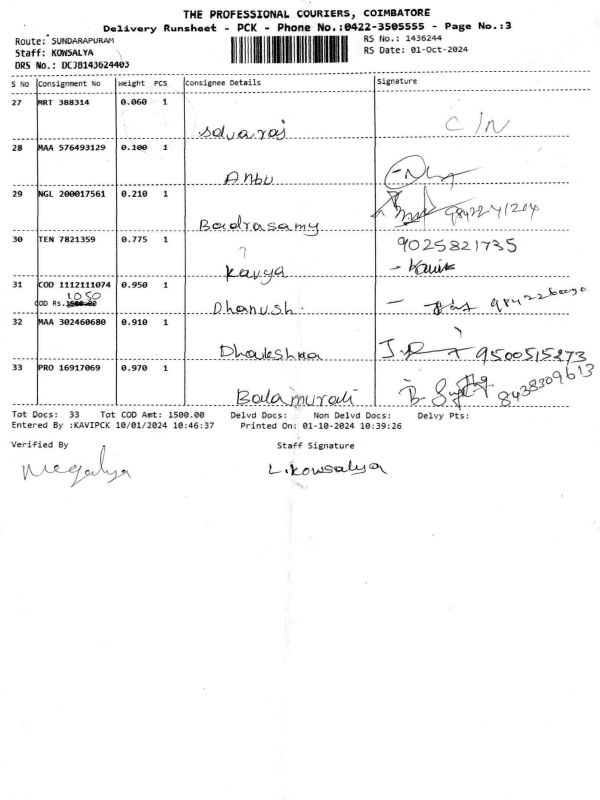 THE PROFESSIONAL COURIERS, COIMBATORE
Delivery Runsheet - PCK - Phone No.:0422-3505555 - Page No.:3
Route: SUNDARAPURAM
Staff: KOWSALYA
DRS No.: DCJB143624403
RS No.: 1436244
RS Date: 01-Oct-2024
S No Consignment No Weight PCS Consignee Details Signature
27 MRT 388314 0.060 1 Selvaraj C/N
28 MAA 576493129 0.100 1 Anbu
29 NGL 200017561 0.210 1 Badrasamy
30 TEN 7821359 0.775 1 ? Kavya 9025821735
31 COD 1112111074 0.950 1 Dhanush.
1050
COD Rs.1500.00
32 MAA 302460680 0.910 1 Dhakshna 9500515273
33 PRO 16917069 0.970 1 Balamurali 8438309613
Tot Docs: 33 Tot COD Amt: 1500.00 Delvd Docs: Non Delvd Docs: Delvy Pts:
Entered By :KAVIPCK 10/01/2024 10:46:37 Printed On: 01-10-2024 10:39:26
Verified By Staff Signature
Megalya L.Kowsalya